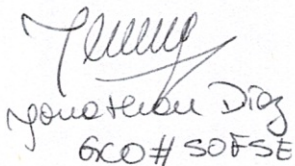 Jonathan Diaz
GCO # SOFSE